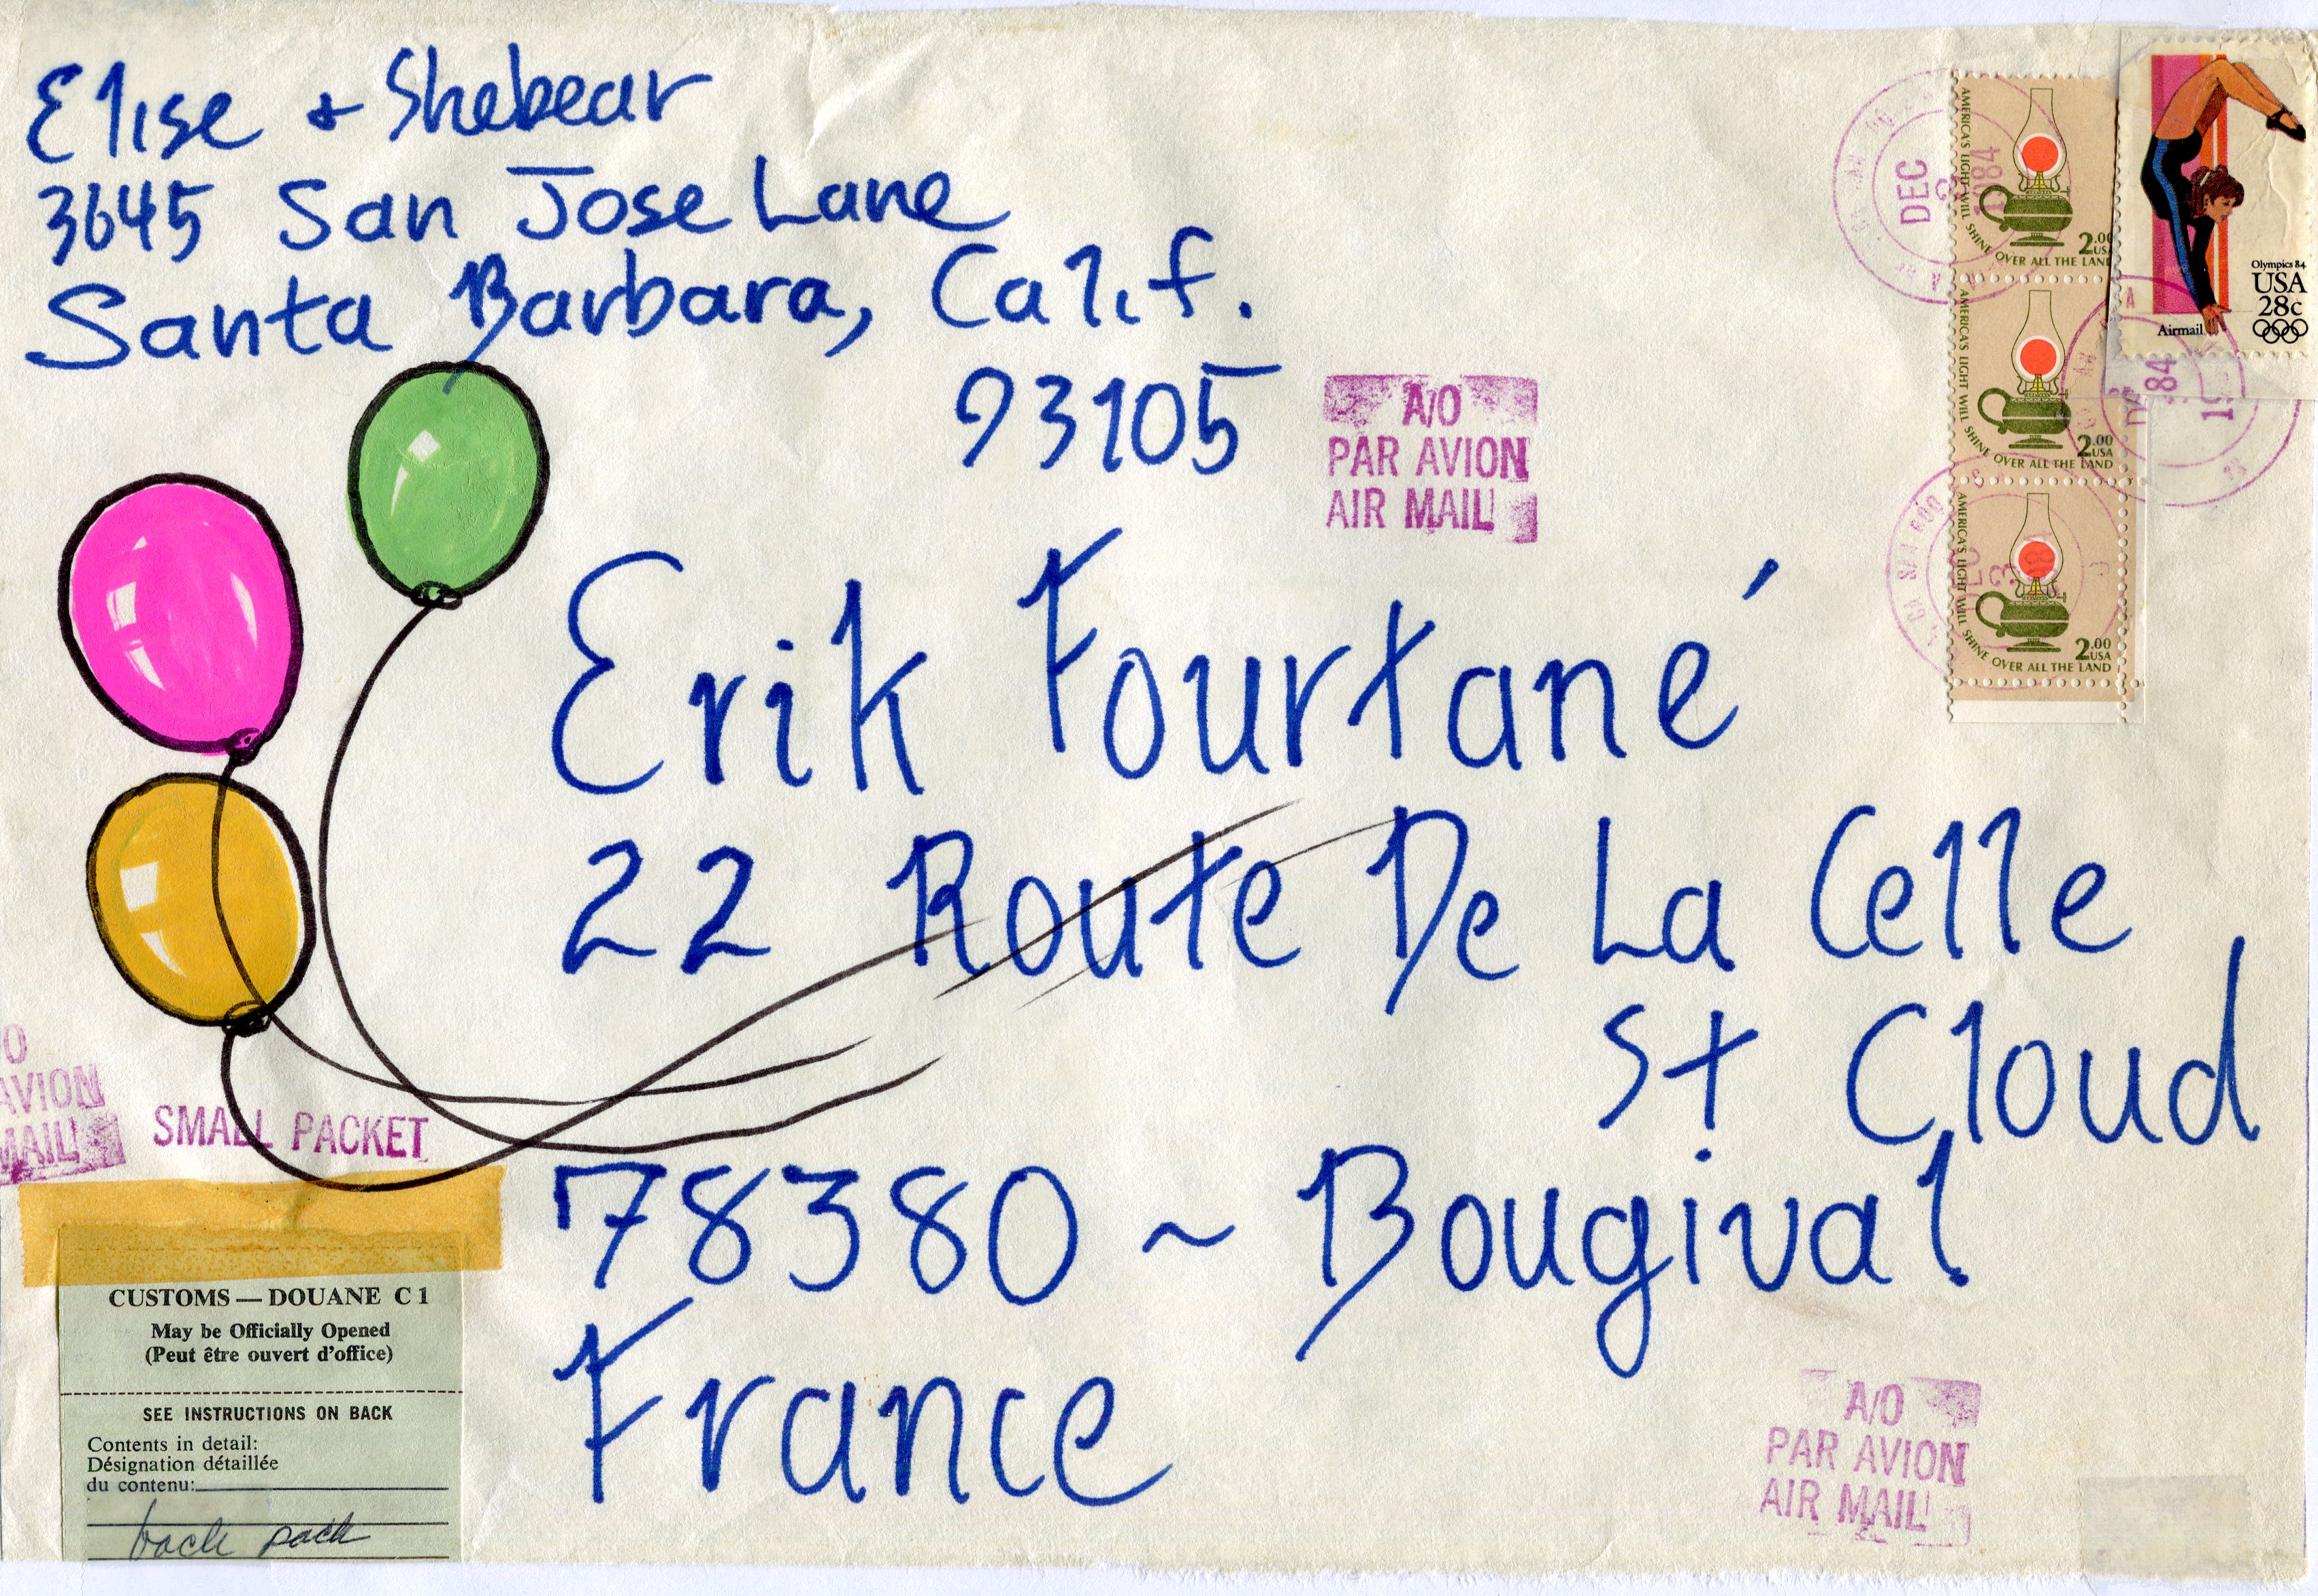 Elise + Shebear
3645 San Jose Lane
Santa Barbara, Calif.
93105
A/O
PAR AVION
AIR MAIL
DEC
1984
AMERICA'S LIGHT WILL SHINE OVER ALL THE LAND
2.00
USA
AMERICA'S LIGHT WILL SHINE OVER ALL THE LAND
2.00
USA
AMERICA'S LIGHT WILL SHINE OVER ALL THE LAND
2.00
USA
Olympics 84
USA
28c
Airmail
Erik Fourtané
22 Route De La Celle
St Cloud
78380 ~ Bougival
France
O
AVION
MAIL
SMALL PACKET
CUSTOMS — DOUANE C 1
May be Officially Opened
(Peut être ouvert d'office)
SEE INSTRUCTIONS ON BACK
Contents in detail:
Désignation détaillée
du contenu:
back pack
A/O
PAR AVION
AIR MAIL